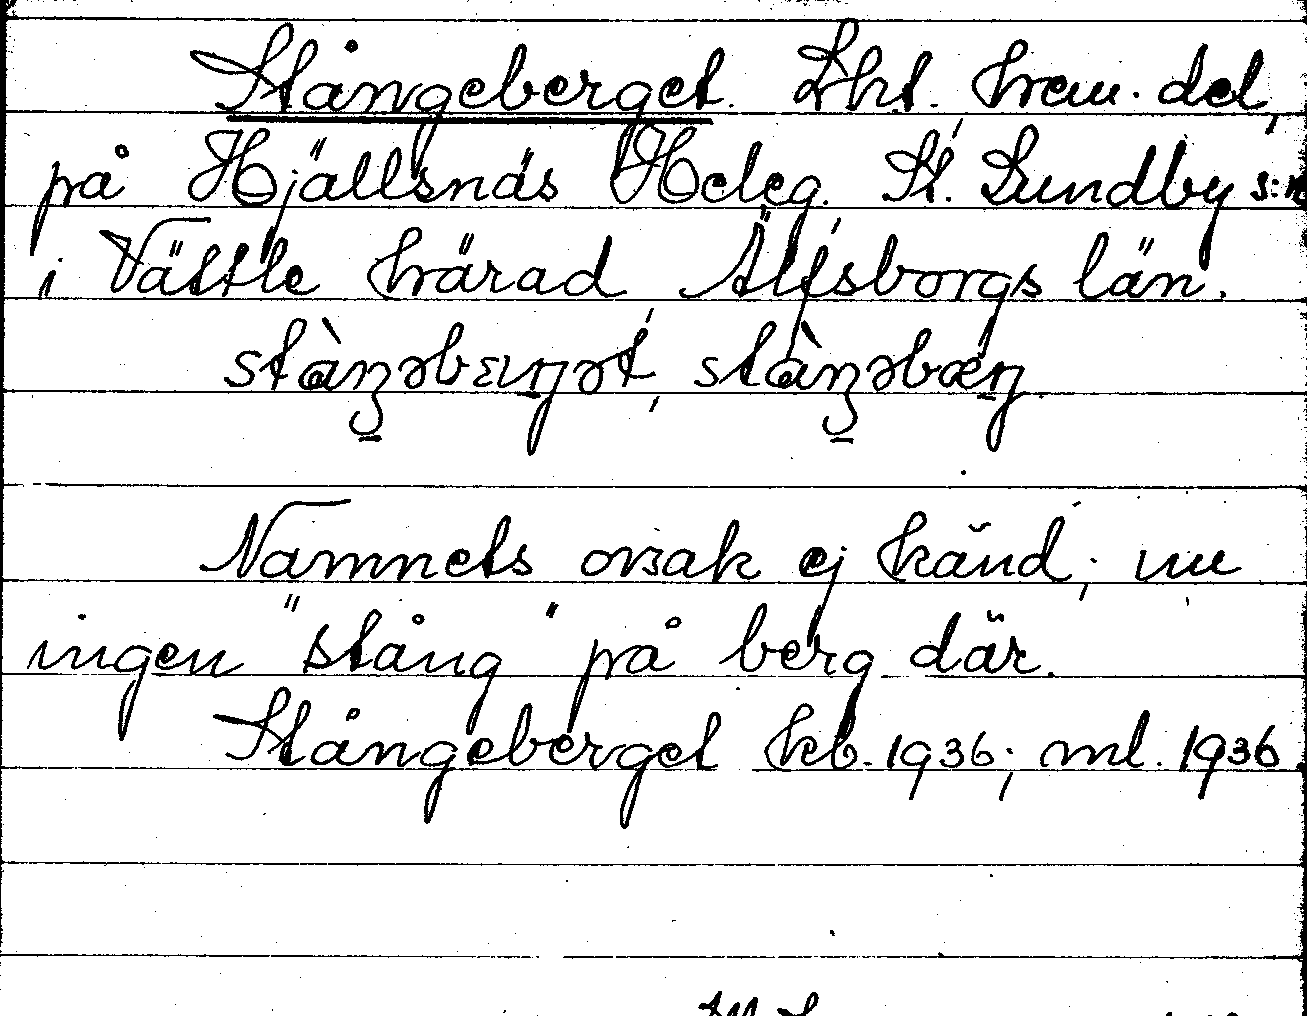 Stångeberget. Lht. hem. del,
på Hjällsnäs Heleg. St. Lundby s:n
i Vättle härad, Älfsborgs län.
Namnets orsak ej känd; nu
ingen "stång" på berg där.
Stångeberget kb. 1936; ml. 1936.